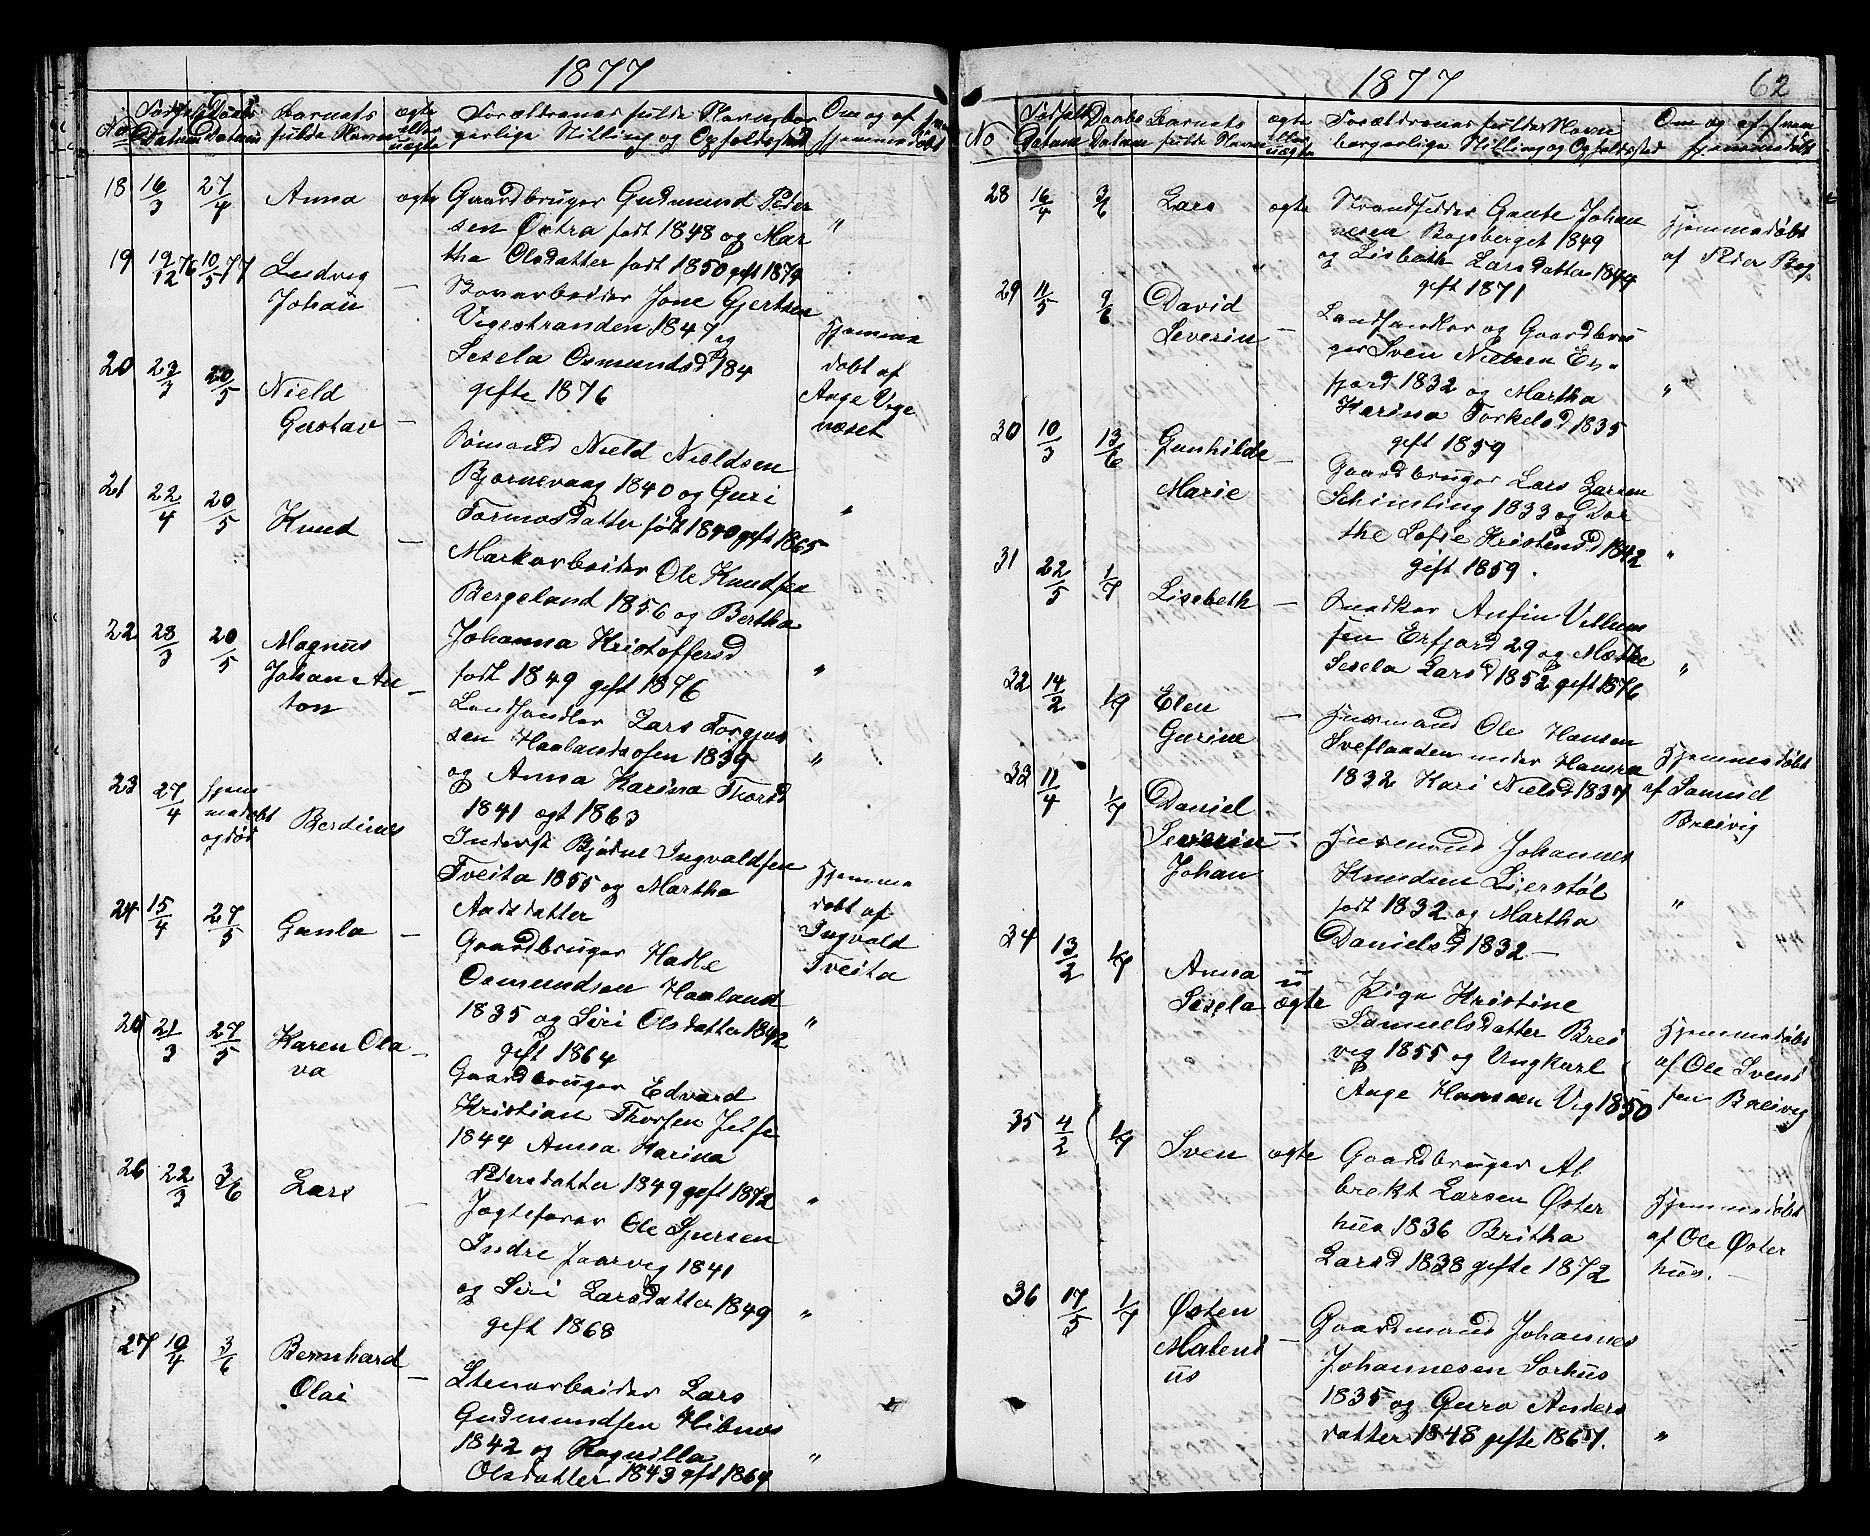 1877
No Fødsels Datum Daabs Datum Barnets fulde Navn ægte eller uægte Forældrenes fulde Navn, borgerlige Stilling og Opholdssted Om og af hvem hjemmedøbt
18 16/3 27/4 Anna ægte Gaardbruger Gudmund Peder
sen Østra født 1848 og Mar "
tha Olsdatter født 1850 gift 1874
19 19/12 76 10/5 77 Ludvig
Johan — Jone Gjertsen
Vigestranden 1847 og Hjemme
Sesela Osmundsd 184 døbt af
gifte 1876 Aage Vige
næset
20 22/3 20/5 Nield
Gustav — Sømand Nield Nieldsen
Bjørnevaag 1840 og Guri
Tormosdatter født 1840 gift 1865 "
21 22/4 20/5 Knud — Markarbeider Ole Knudsen
Bergeland 1856 og Bertha
Johanna Kristoffersd
født 1849 gift 1876 "
22 28/3 20/5 Magnus
Johan An —
ton
Landhandler Lars Torgjus
sen Haalandsosen 1839 "
og Anna Karina Thorsd
1841 1863
23 27/4 hjem
medøbt
og død Berdines
Inderst Bjødne Ingvaldsen
Tveita 1855 og Martha Hjemme
datter døbt af
Ingvald
Tveita
24 15/4 27/5 Gunla — Gaardbruger Hadle
Osmundsen Haaland
1835 og Siri Olsdatter 1842 "
gift 1864
25 21/3 27/5 Karen Ola —
va
Gaardbruger Edvard
Kristian Thorsen Jelse
1844 Anna Karina
Pedersdatter 1849 gift 1872 "
26 22/3 3/6 Lars — Jagtefører Ole Sjursen
Indre Jaarvig 1841
og Siri Larsdatter 1849 "
gift 1868
27 10/4 3/6 Bernhard —
Olai
Stenarbeider Lars
Gudmundsen Hibnes
1842 og Ragnilla "
Olsdatter 1843 gift 1864
1877 62
No Fødsels Datum Daabs Datum Barnets fulde Navn ægte eller uægte Forældrenes fulde Navn borgerlige Stilling og Opholdssted Om og af hvem hjemmedøbt
28 16/4 3/6 Lars ægte Strandsidder Gaute Johan
nesen Bogsberget 1849 Hjemmedøbt
og Lisbeth Larsdatter 1844 af Peder Bog
gift 1871
29 11/5 9/6 David
Severin — Landhandler og Gaardbru
ger Sven Nielsen Er
fjord 1832 og Martha "
Karina Torkelsd 1835
gift 1859
30 10/3 13/6 Gunhilde —
Marie
Gaardbruger Lars Larsen
Schimsling 1833 og Dor
the Sofie Kristensd 1842 "
gift 1859.
31 22/5 1/7 Lisebeth — Anfin Villum
sen Erfjord 29 og Mætthe
Sesela Larsd 1852 gift 1876 "
32 14/2 1/7 Elen —
Gurine
Husmand Ole Hansen
Sveflaaden under Hamra Hjemmedøbt
1832 Kari Nielsd 1837 af Samuel
Breivig
33 11/4 1/7 Daniel
Severin —
Johan
Husmand Johannes
Knudsen Lierstøl
født 1832 og Martha "
Danielsd 1832 —
34 13/2 1/7 Anna u
Sesela ægte Pige Kristine
Samuelsdatter Brei Hjemmedøbt
vig 1855 og Ungkarl af Ole Svend
Aage Hansen Vig 1850 sen Breivig
35 4/2 1/7 Sven ægte Gaardbruger Al
brekt Larsen Øster Hjemmedøbt
hus 1836 Britha af Ole Øster
Larsd 1838 gifte 1872 hus. —
36 17/5 1/7 Østen
Malend —
us
Gaardmand Johannes
Johannesen Sorhus
1835 og Guro Anders
datter 1848 gifte 1867. "